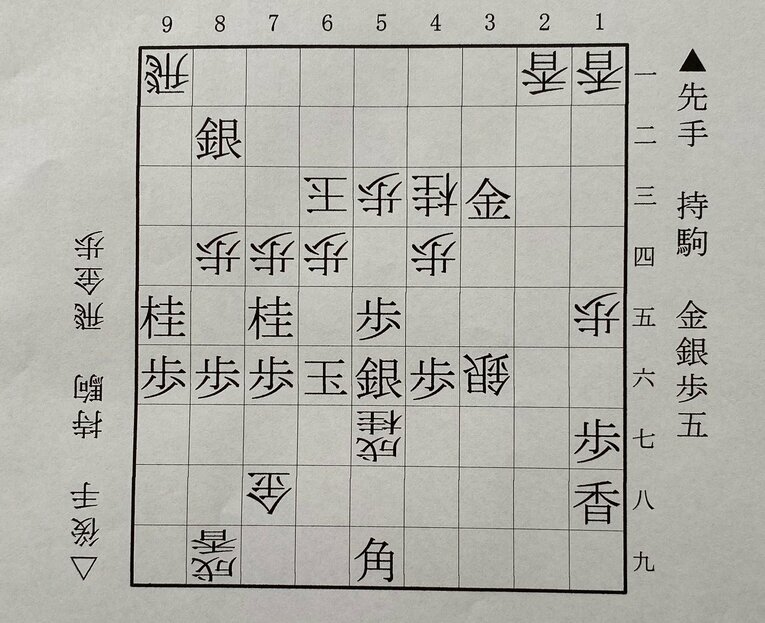 9 8 7 6 5 4 3 2 1
飛 香 香 一
銀 二
王 歩 桂 金 三
歩 歩 歩 歩 四
桂 桂 歩 歩 五
歩 歩 歩 玉 銀 歩 銀 六
成桂 歩 七
金 香 八
成香 角 九
▲先手 持駒 金銀歩五
△後手 持駒 飛金歩